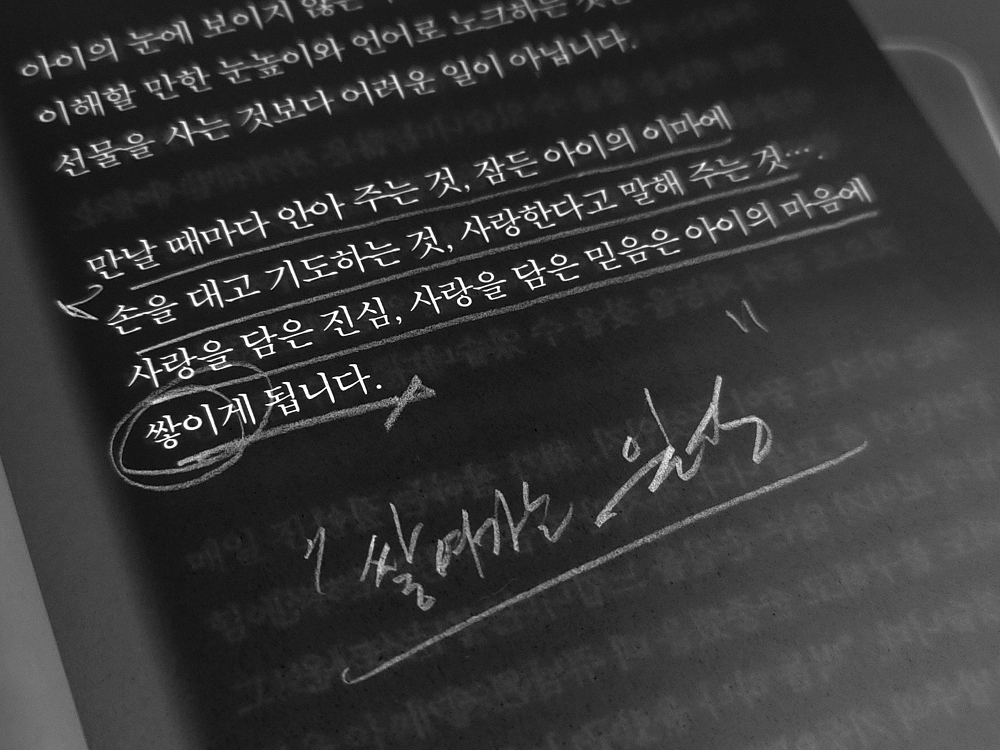 아이의 눈에 보이지 않는
이해할 만한 눈높이와 언어로 노크하는 것은
선물을 사는 것보다 어려운 일이 아닙니다.
만날 때마다 안아 주는 것, 잠든 아이의 이마에
손을 대고 기도하는 것, 사랑한다고 말해 주는 것….
사랑을 담은 진심, 사랑을 담은 믿음은 아이의 마음에
쌓이게 됩니다.
"
"